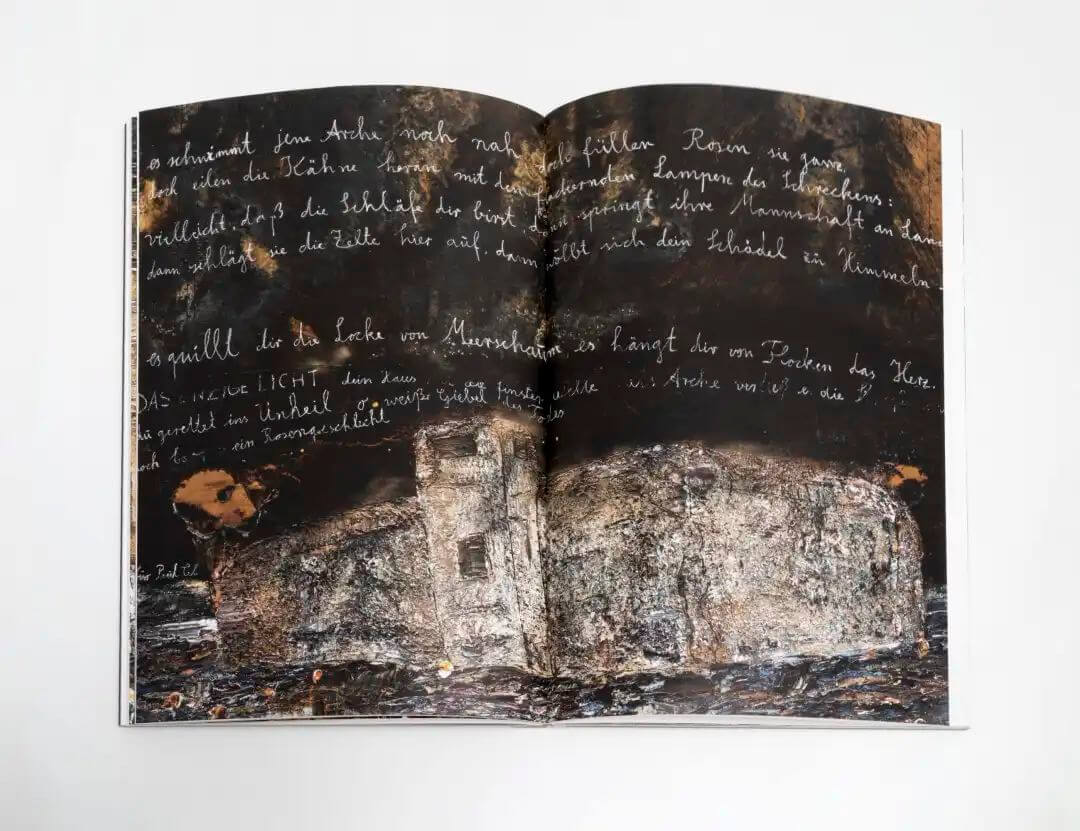 es schwimmt jene Arche noch nah doch füllen Rosen sie ganz,
doch eilen die Kähne heran mit den flackernden Lampen des Schreckens:
vielleicht, daß die Schläfe dir birst, dann springt ihre Mannschaft an Land
dann schlägt sie die Zelte hier auf, dann wölbt sich dein Schädel zu Himmeln -
es quillt dir die Locke von Meerschaum, es hängt dir von Flocken das Herz.
DAS EINZIGE LICHT dein Haus
gerettet ins Unheil o weiße Giebel des Todes Arche verließ er die
noch ein Rosengeschlecht